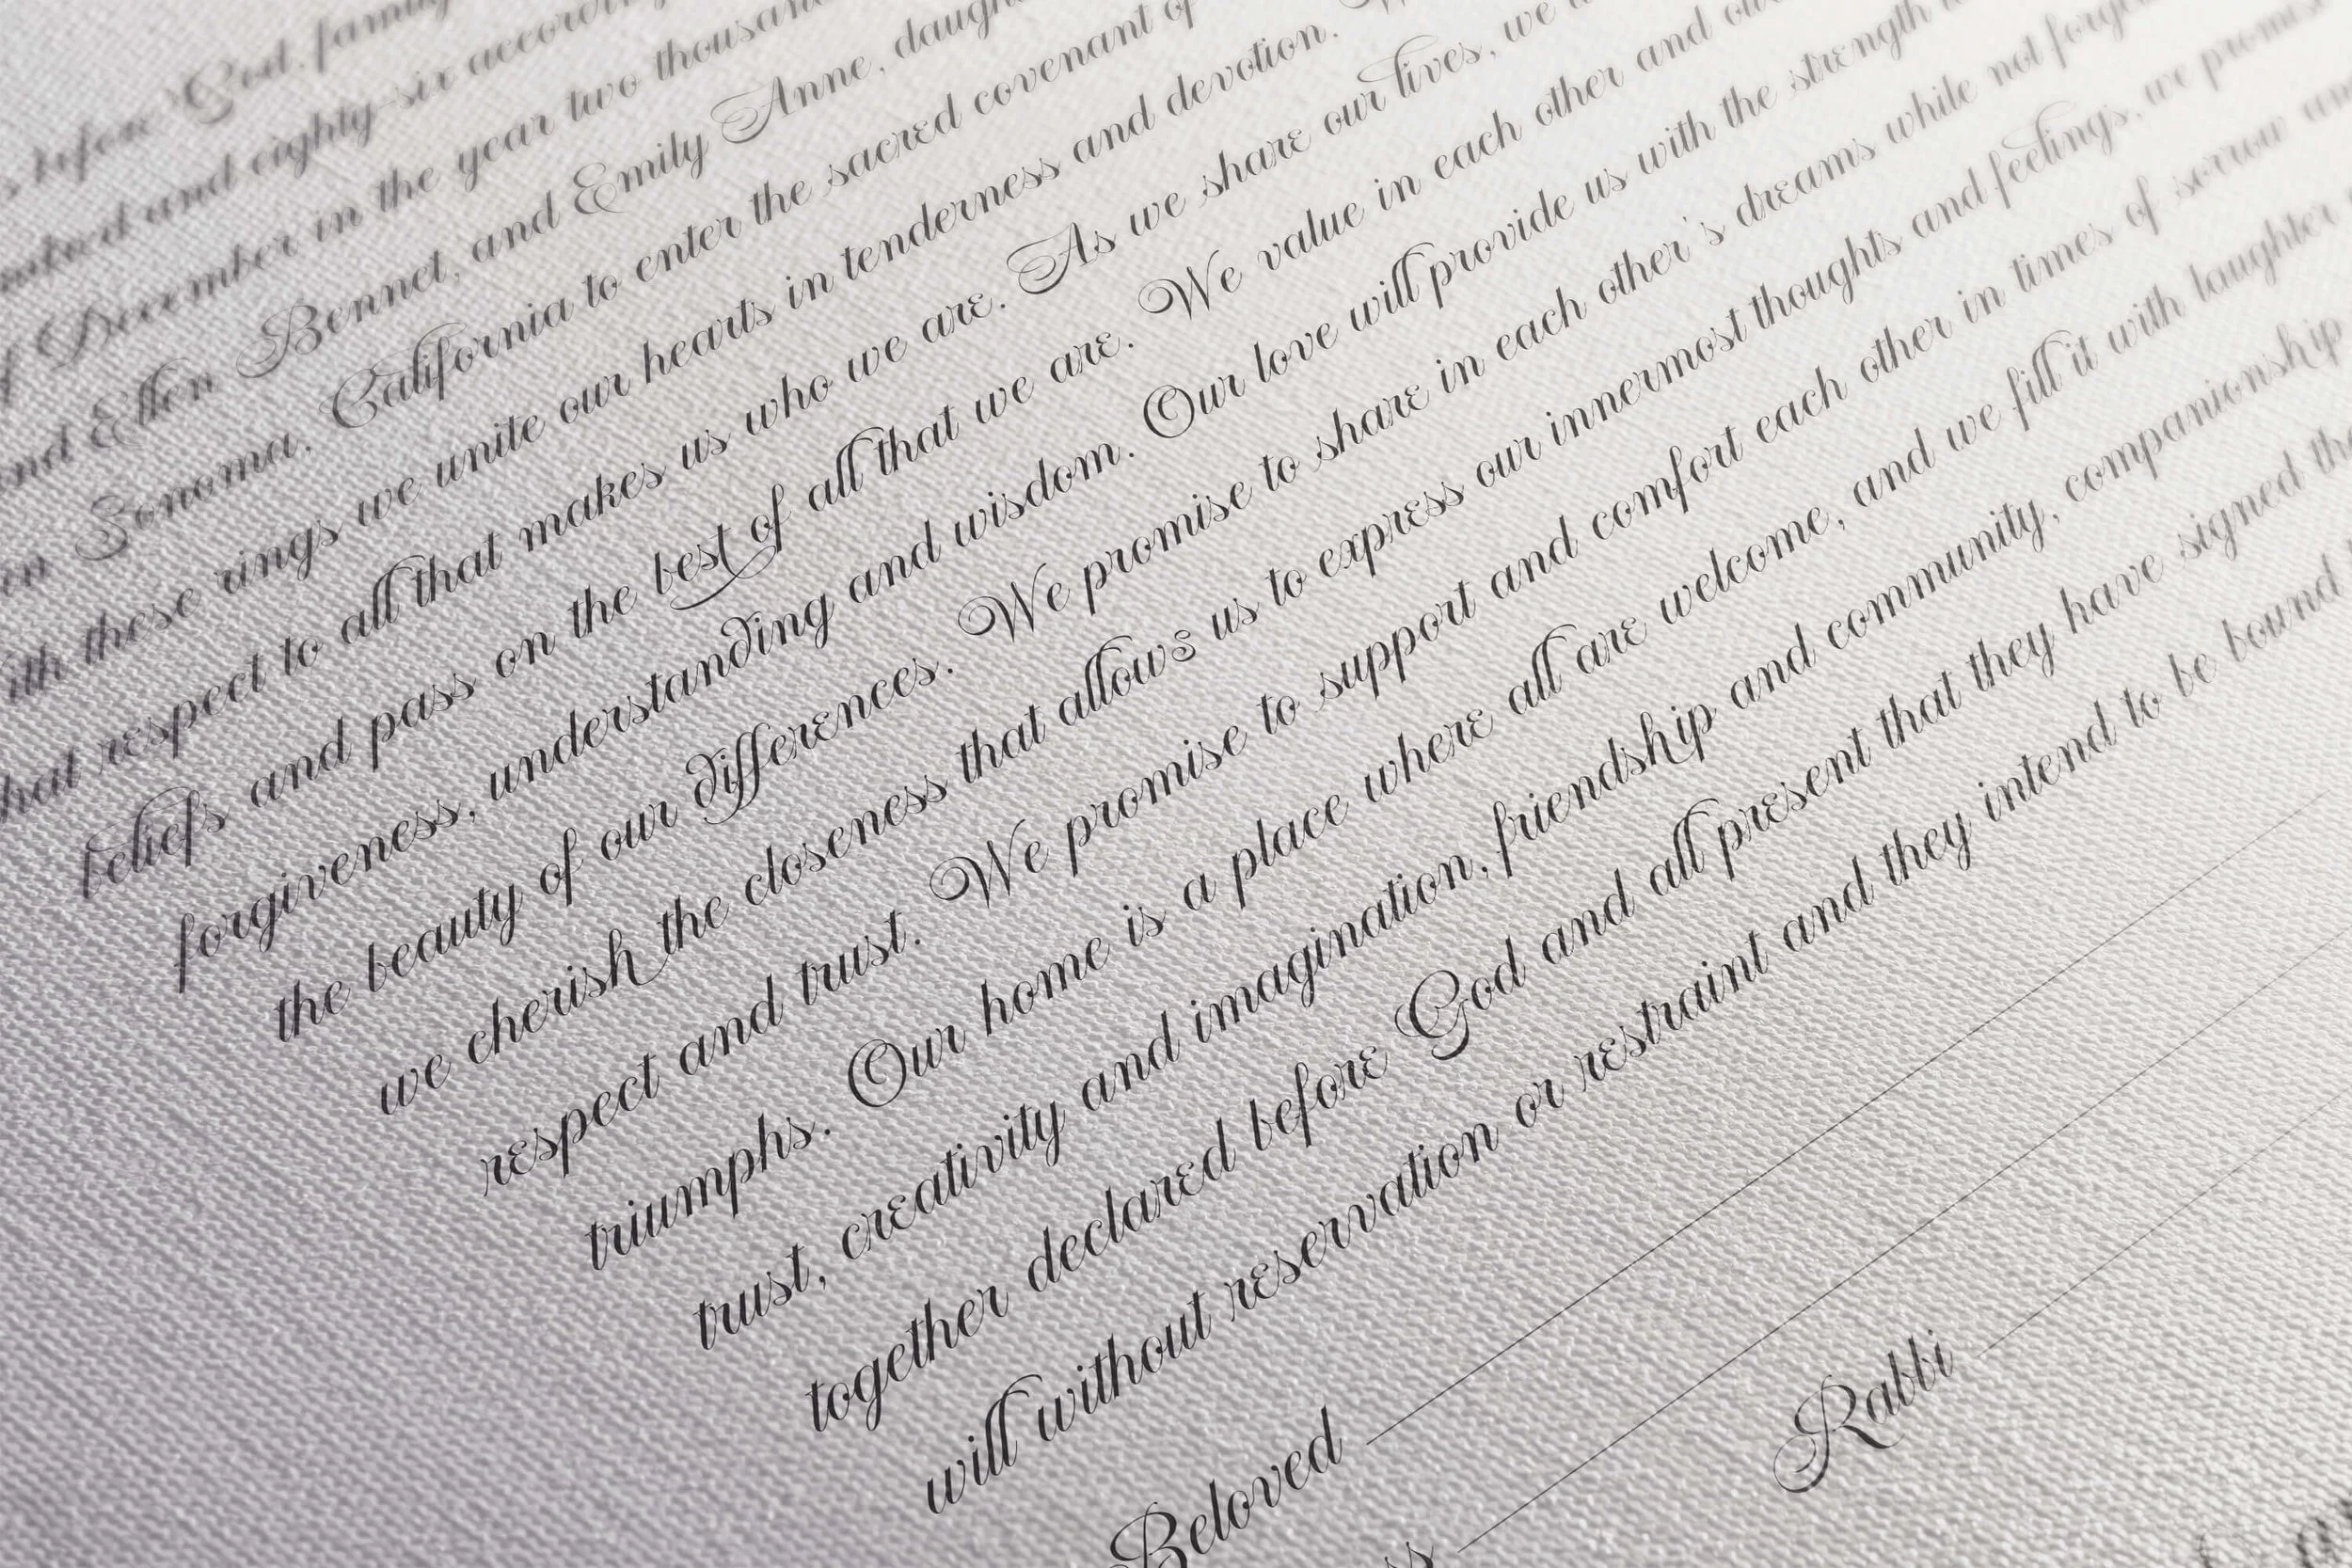 before God, family
and eighty-six according
December in the year two thousand
and Ellen Bennet, and Emily Anne, daugh
in Sonoma, California to enter the sacred covenant of
ith these rings we unite our hearts in tenderness and devotion.
hat respect to all that makes us who we are. As we share our lives, we
beliefs and pass on the best of all that we are. We value in each other and
forgiveness, understanding and wisdom. Our love will provide us with the strength
the beauty of our differences. We promise to share in each other's dreams while not forge
we cherish the closeness that allows us to express our innermost thoughts and feelings, we promise
respect and trust. We promise to support and comfort each other in times of sorrow
triumphs. Our home is a place where all are welcome, and we fill it with laughter
trust, creativity and imagination, friendship and community, companionship
together declared before God and all present that they have signed
will without reservation or restraint and they intend to be bound
Beloved
Rabbi